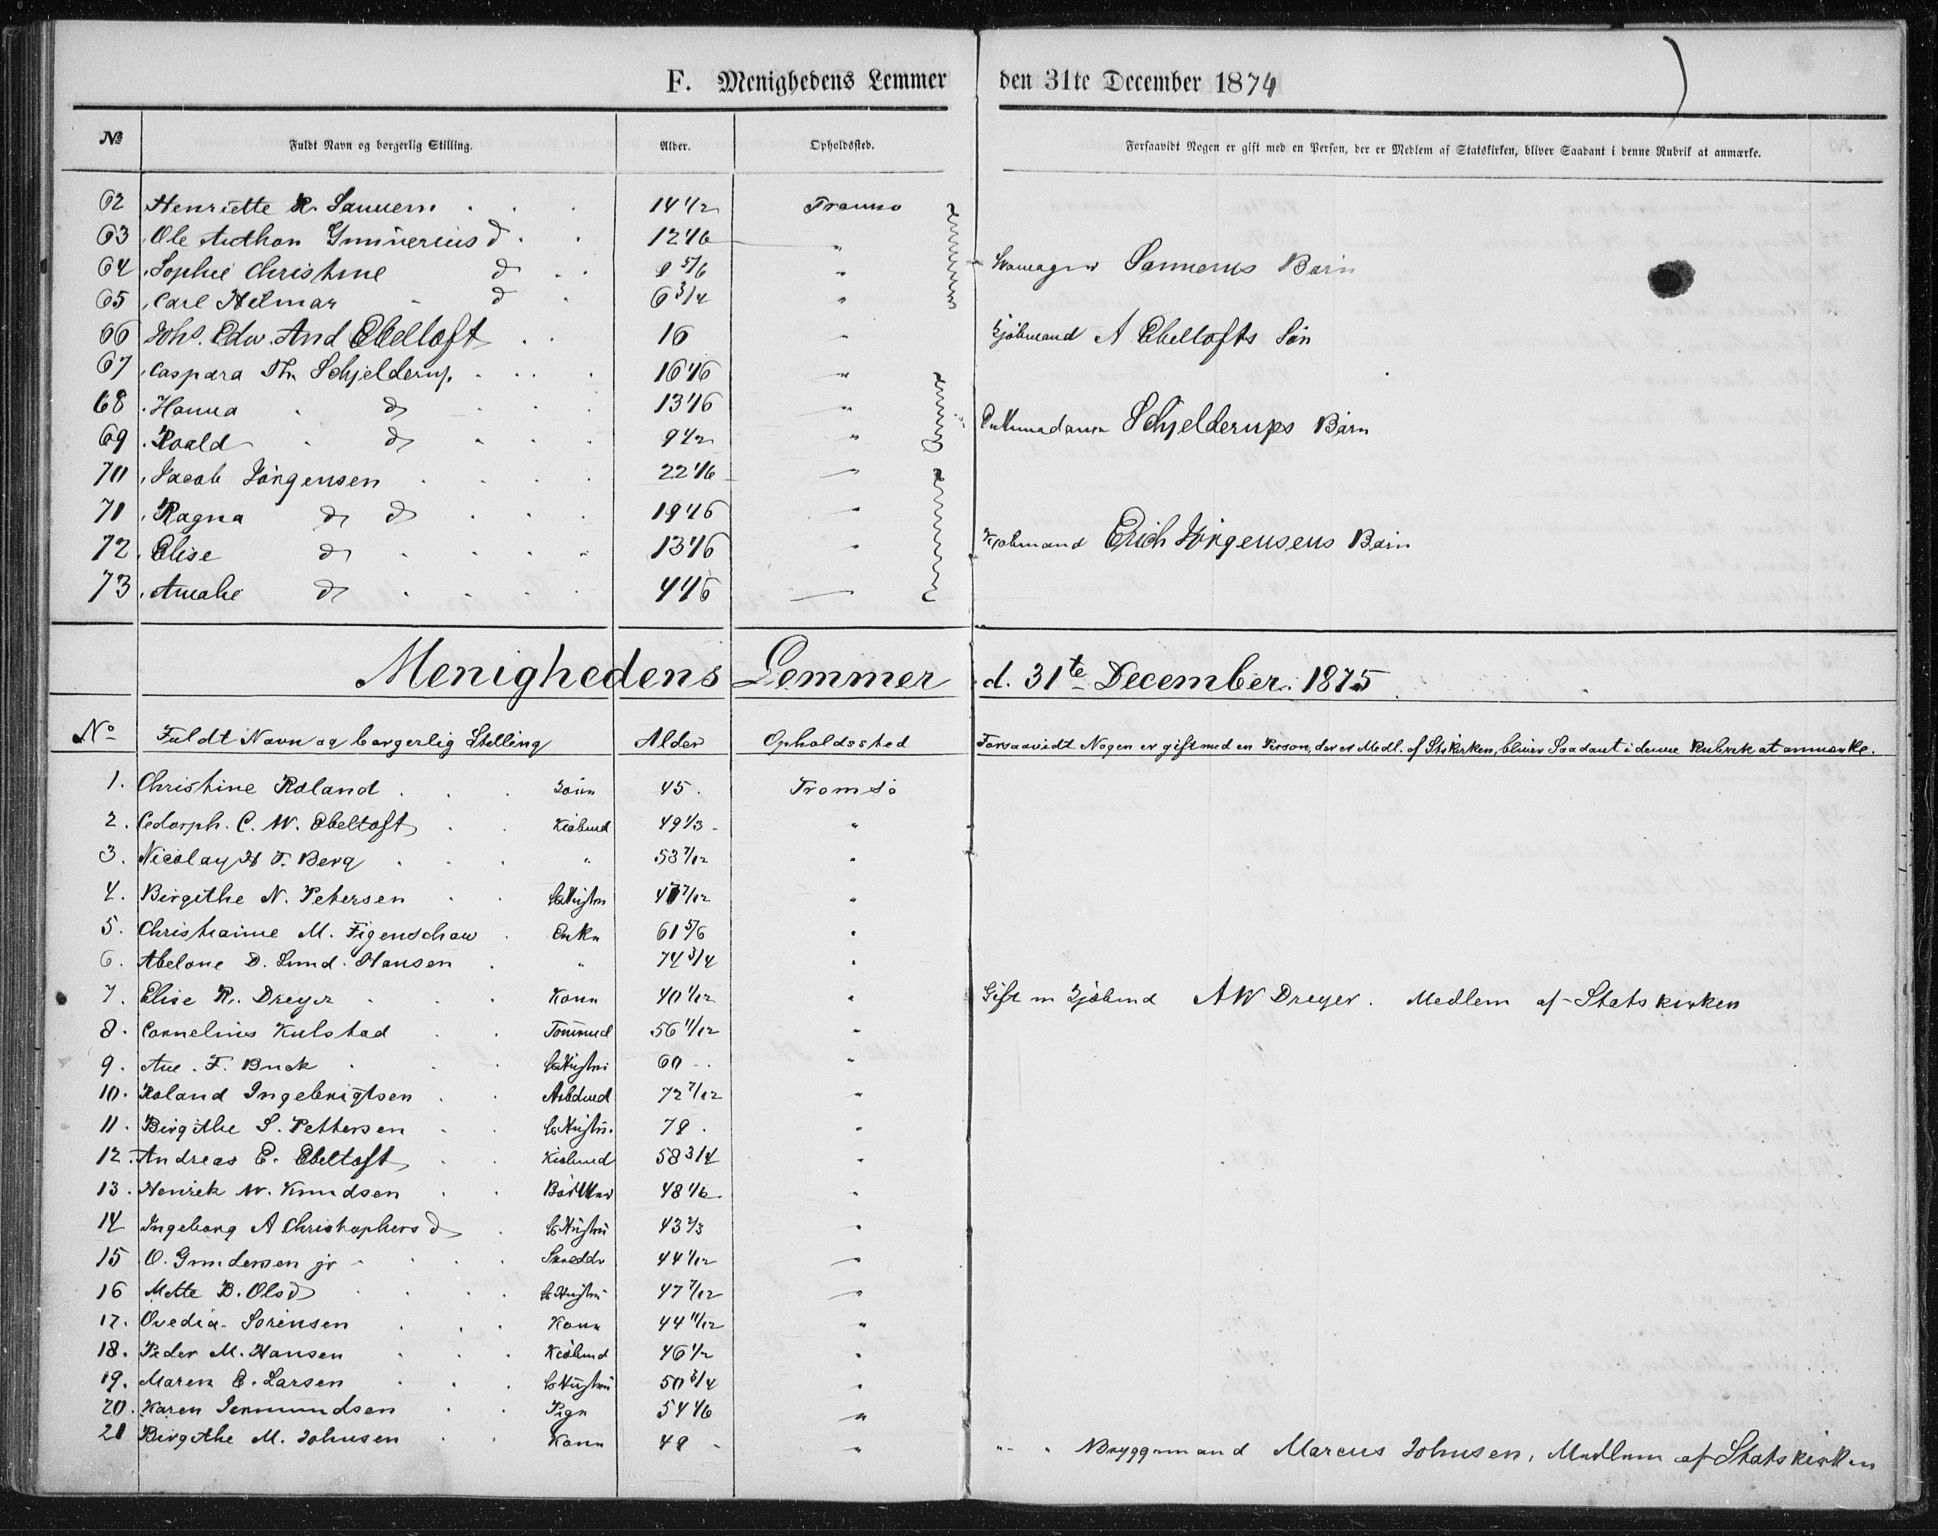 F. Menighedens Lemmer den 31te December 1874
№ Fuldt Navn og borgerlig Stilling. Alder. Opholdssted. Forsaavidt Nogen er gift med en Person, der er Medlem af Statskirken, bliver Saadant i denne Rubrik at anmærke.
62 Henriette R. 14 1/2 Tromsø
63 Ole Anthon Gunnerius d 12 1/6 "
64 Sophie Christine d 8 5/6 " Børn
65 Carl Helmar d 6 3/4 "
66 Johs. Edw. And Ebeltoft 16 " Kjøbmand A Ebeltofts Søn
67 Caspara Th. Schjelderup 16 1/6 "
68 Hanna d 13 1/6 " Schjelderups Børn
69 Roald d 9 1/2 "
70 Jacob Jørgensen 22 1/6 "
71 Ragna d d 19 1/6 "
72 Elise d 13 1/6 " Kjøbmand Erich Jørgensens Børn
73 Amalie d 4 1/6 "
Menighedens Lemmer d. 31te December 1875
No Fuldt Navn og borgerlig Stilling Alder Opholdssted Forsaavidt Nogen er gift med en Person, der er Medl. af Stskirken, bliver Saadant i denne Rubrik at anmærke.
1. Christine Roland 45. Tromsø
2. C. W. Ebeltoft Kiøbmd 49 1/3 "
3. Nicolay H T. Berg " 53 7/12 "
4. Birgithe N. Petersen Hustru "
5. Christianne M. Figenschou Enke 61 5/6 "
6. Abelone D. Lund. Hansen " 74 3/4 "
7. Elise R. Dreyer Kone 40 1/12 " Gift m Kjøbmd A W Dreyer. Medlem af Statskirken
8. Cornelius Kulstad Tømmd 56 11/12 "
9. Ane. F. Buck Hustru 60 "
10. Roland Ingebrigtsen Arbdmd 72 7/12 "
11. Birgithe S. Pettersen Hustru. 78. "
12. Andreas E. Ebeltoft Kiøbmd 58 3/4 "
13. Henrik W. Knudsen 48 1/6 "
14 Ingeborg A Christophersd Hustru 43 2/3 "
15 O. Gundersen jr Skrædder 44 1/12 "
16 Mette B. Olsd Hustru 47 7/12 "
17. Ovedia Sørensen Kone 44 11/12 "
18. Peder M. Hansen Kiøbmd 46 1/2 "
19. Maren E. Larsen Hustru 50 3/4 "
20. Karen Ismundsen Pige 54 1/6 "
21 Birgithe M. Johnsen Kone 48 " " " Bryggemand Marcus Johnsen, Medlem af Statskirken